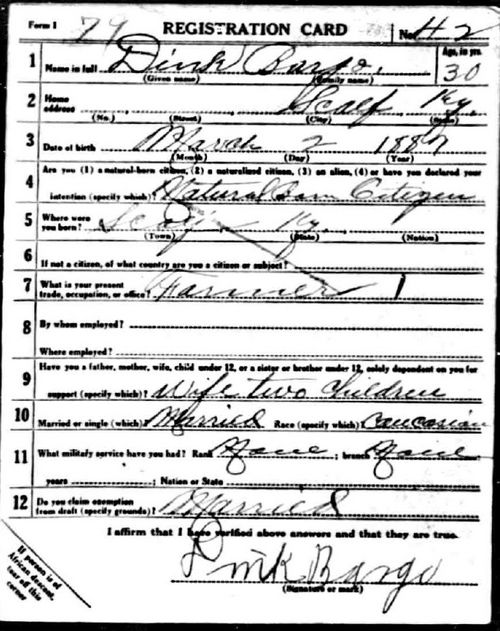 Form 1 79 REGISTRATION CARD No. 42
1 Name in full Dink Bargo. Age, in yrs. 30
(Given name) (Family name)
2 Home address Scalf Ky.
(No.) (Street) (City) (State)
3 Date of birth March 2 1887
(Month) (Day) (Year)
4 Are you (1) a natural-born citizen, (2) a naturalized citizen, (3) an alien, (4) or have you declared your
intention (specify which)? Natural Born Citizen
5 Where were you born? Scalf Ky.
(Town) (State) (Nation)
6 If not a citizen, of what country are you a citizen or subject?
7 What is your present trade, occupation, or office? Farmer 1
8 By whom employed?
Where employed?
9 Have you a father, mother, wife, child under 12, or a sister or brother under 12, solely dependent on you for
support (specify which)? Wife two children
10 Married or single (which)? Married Race (specify which)? Caucasian
11 What military service have you had? Rank None ; branch None
years ; Nation or State
12 Do you claim exemption from draft (specify grounds)? Married
I affirm that I have verified above answers and that they are true.
Dink Bargo
(Signature or mark)
If person is of
African descent,
tear off this
corner